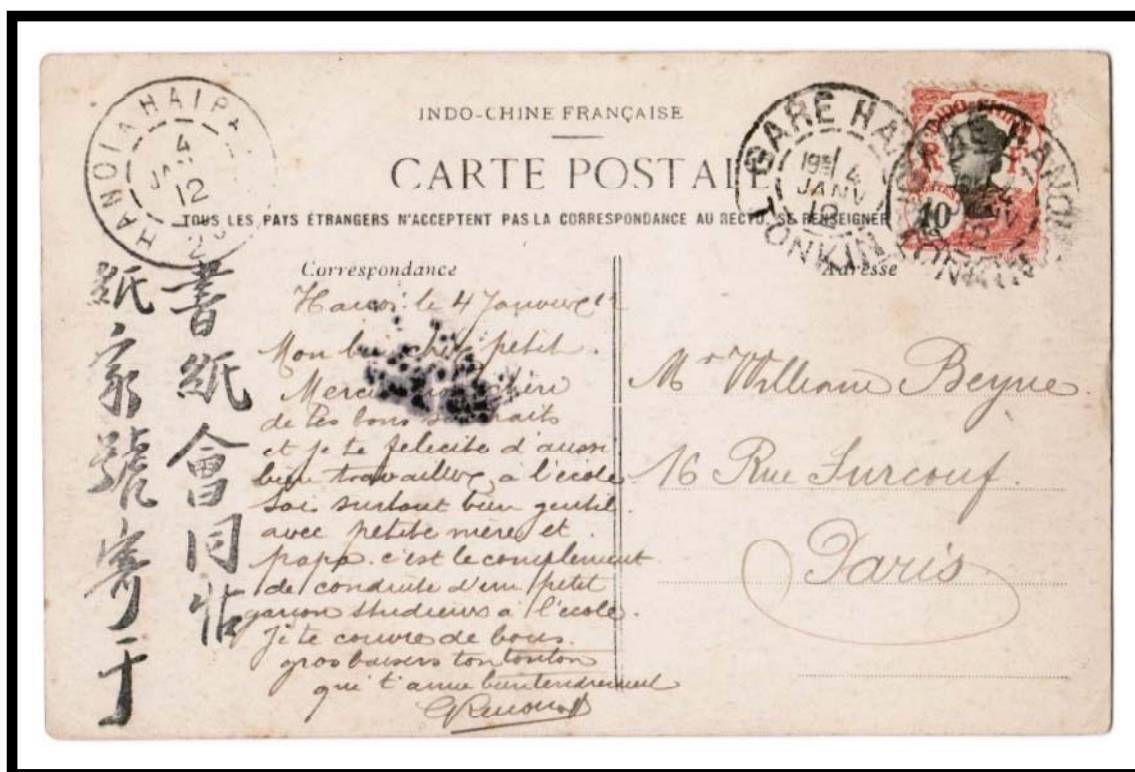 HANOI A HAIP
4
JAN
12
INDO-CHINE FRANÇAISE
CARTE POSTALE
TOUS LES PAYS ÉTRANGERS N'ACCEPTENT PAS LA CORRESPONDANCE AU RECTO, SE RENSEIGNER
GARE HANOI
4
JANV
12
TONKIN
INDO-CHINE
10
書紙會同帖
紙家號寄于
Correspondance
Hanoi le 4 Janvier 12
Mon cher petit.
Merci chéri
de tes bons souhaits
et je te felicite d'aussi
bien travailler, à l'école
Soi surtout bien gentil
avec petite mère et
papa. c'est le complement
de conduite d'un petit
garcon studieux a l'école.
Je te couvre de bons
gros baisers ton tonton
qui t'aime bien tendrement
Adresse
Mr William Beyne
16 Rue Surcouf
Paris